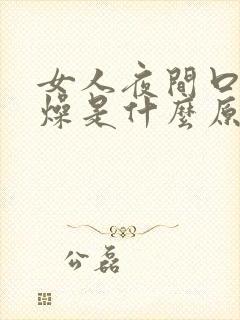 女人夜間口
燥是什麼原
公磊